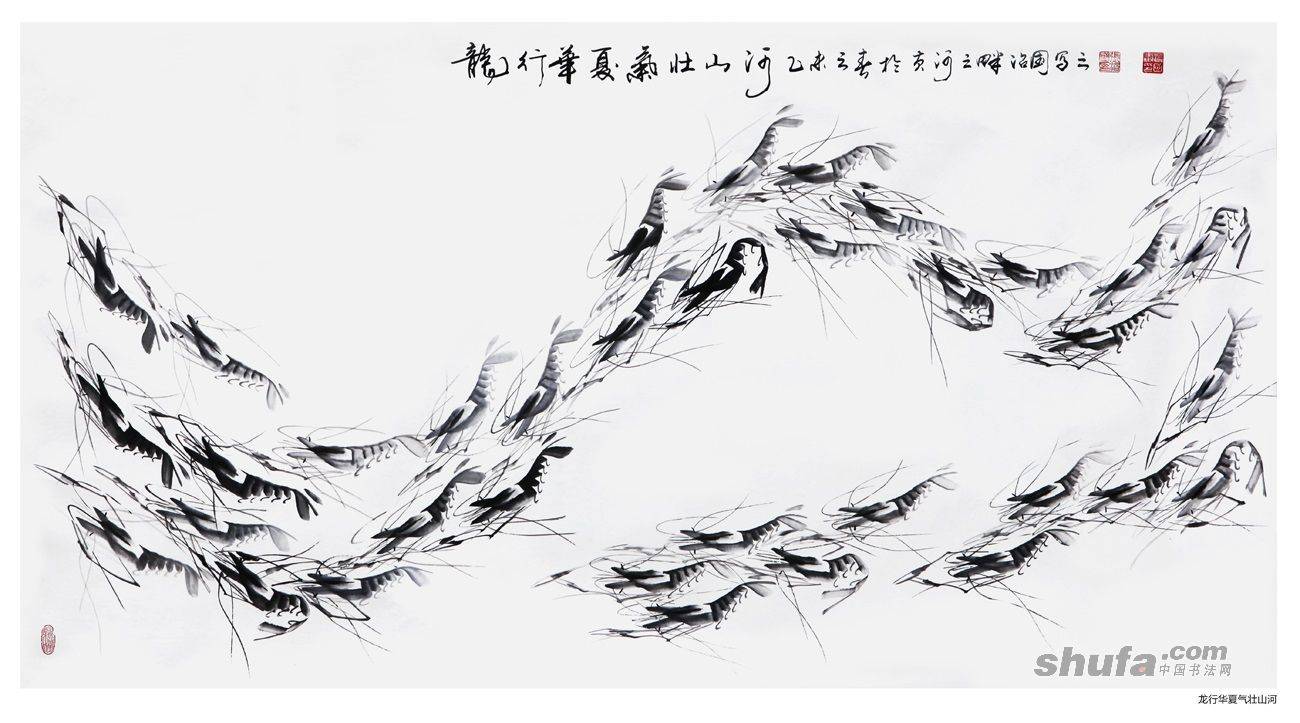 龍行華夏氣壯山河 乙未之春於黄河之畔治國写之
shufa.com
中国书法网
龙行华夏气壮山河